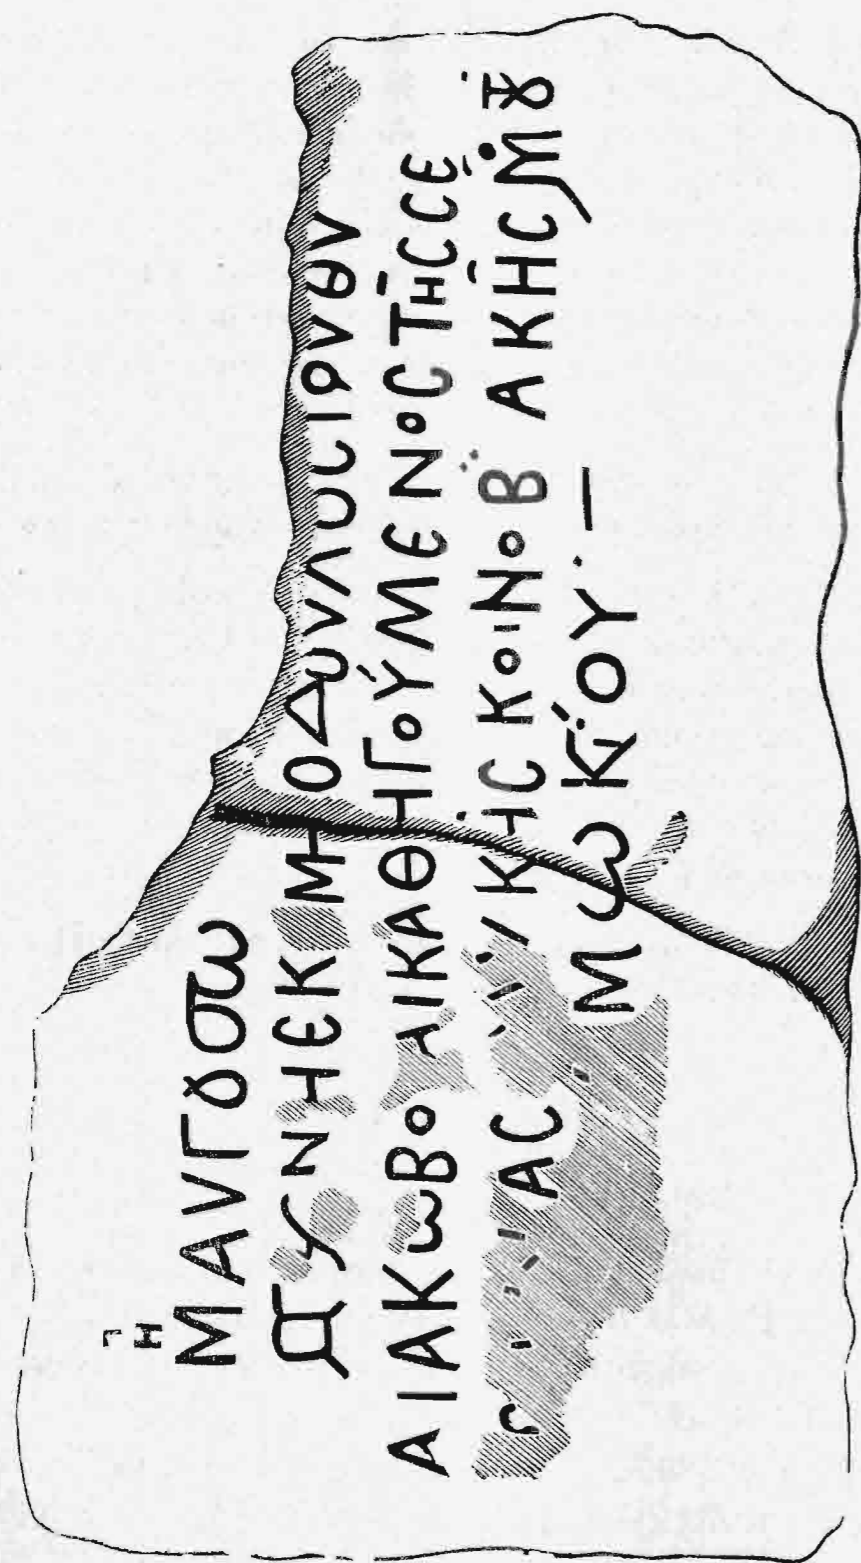 Η
ΜΑΥΓȢϹω
ΝΗΕΚ ΜΗΟΔΟΥΛΟϹΙΡΥΘΥ
ΑΙΑΚωΒΟ ΑΙΚΑΘΗΓΟΥΜΕΝΟϹΤΗϹϹΕ
ΑϹ ΚΗϹΚΟΙΝΟΒ ΑΚΗϹΜȢ
ΜωΚΙΟΥ